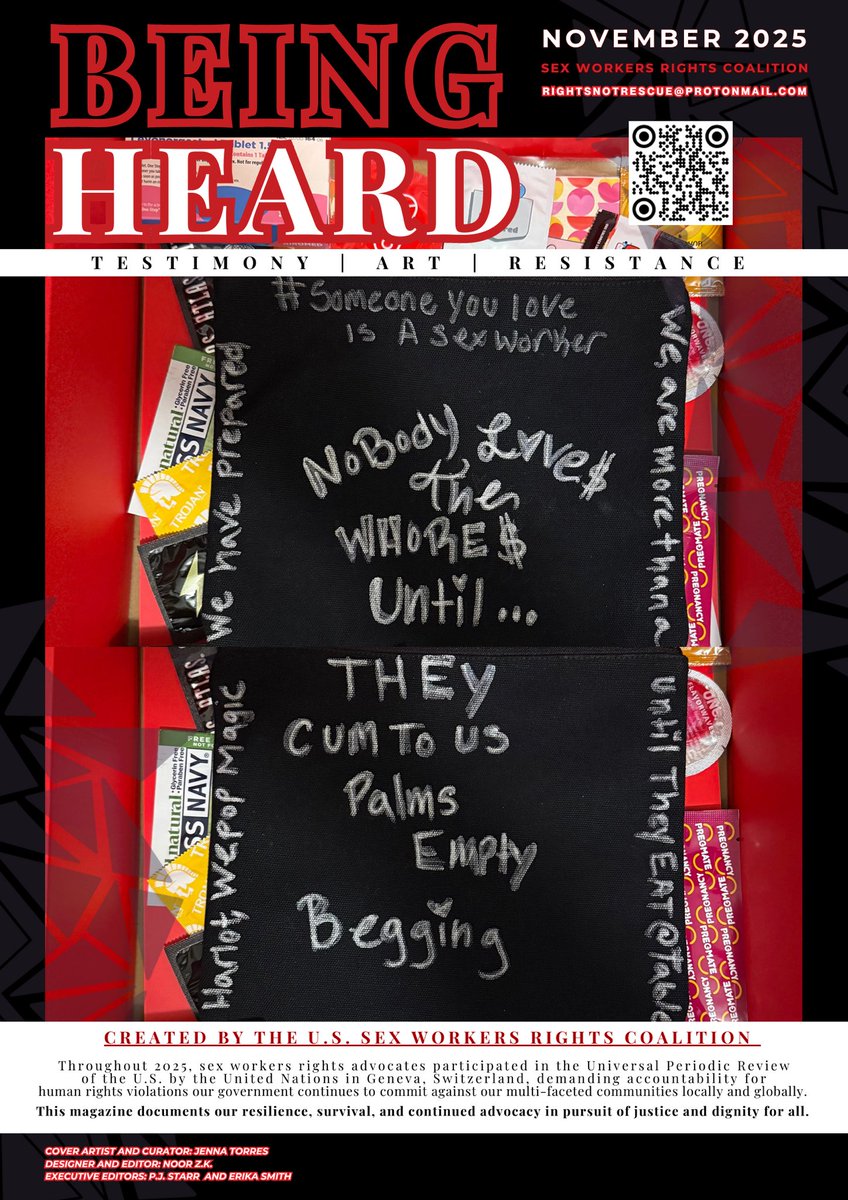 BEING
HEARD
NOVEMBER 2025
SEX WORKERS RIGHTS COALITION
RIGHTSNOTRESCUE@PROTONMAIL.COM
TESTIMONY | ART | RESISTANCE
#Someone You love
is A sex worker
We have prepared
NoBody Love$
The
WHORE$
Until...
We are more than a
THEY
CUM To US
Palms
Empty
Begging
Harlot, We pop Magic
Until They Eat @ Table
ATLAS
natural
SS NAVY
Glycerin Free
Paraben Free
TROJAN
PREGMATE
PREGNANCY
CREATED BY THE U.S. SEX WORKERS RIGHTS COALITION
Throughout 2025, sex workers rights advocates participated in the Universal Periodic Review
of the U.S. by the United Nations in Geneva, Switzerland, demanding accountability for
human rights violations our government continues to commit against our multi-faceted communities locally and globally.
This magazine documents our resilience, survival, and continued advocacy in pursuit of justice and dignity for all.
COVER ARTIST AND CURATOR: JENNA TORRES
DESIGNER AND EDITOR: NOOR Z.K.
EXECUTIVE EDITORS: P.J. STARR AND ERIKA SMITH